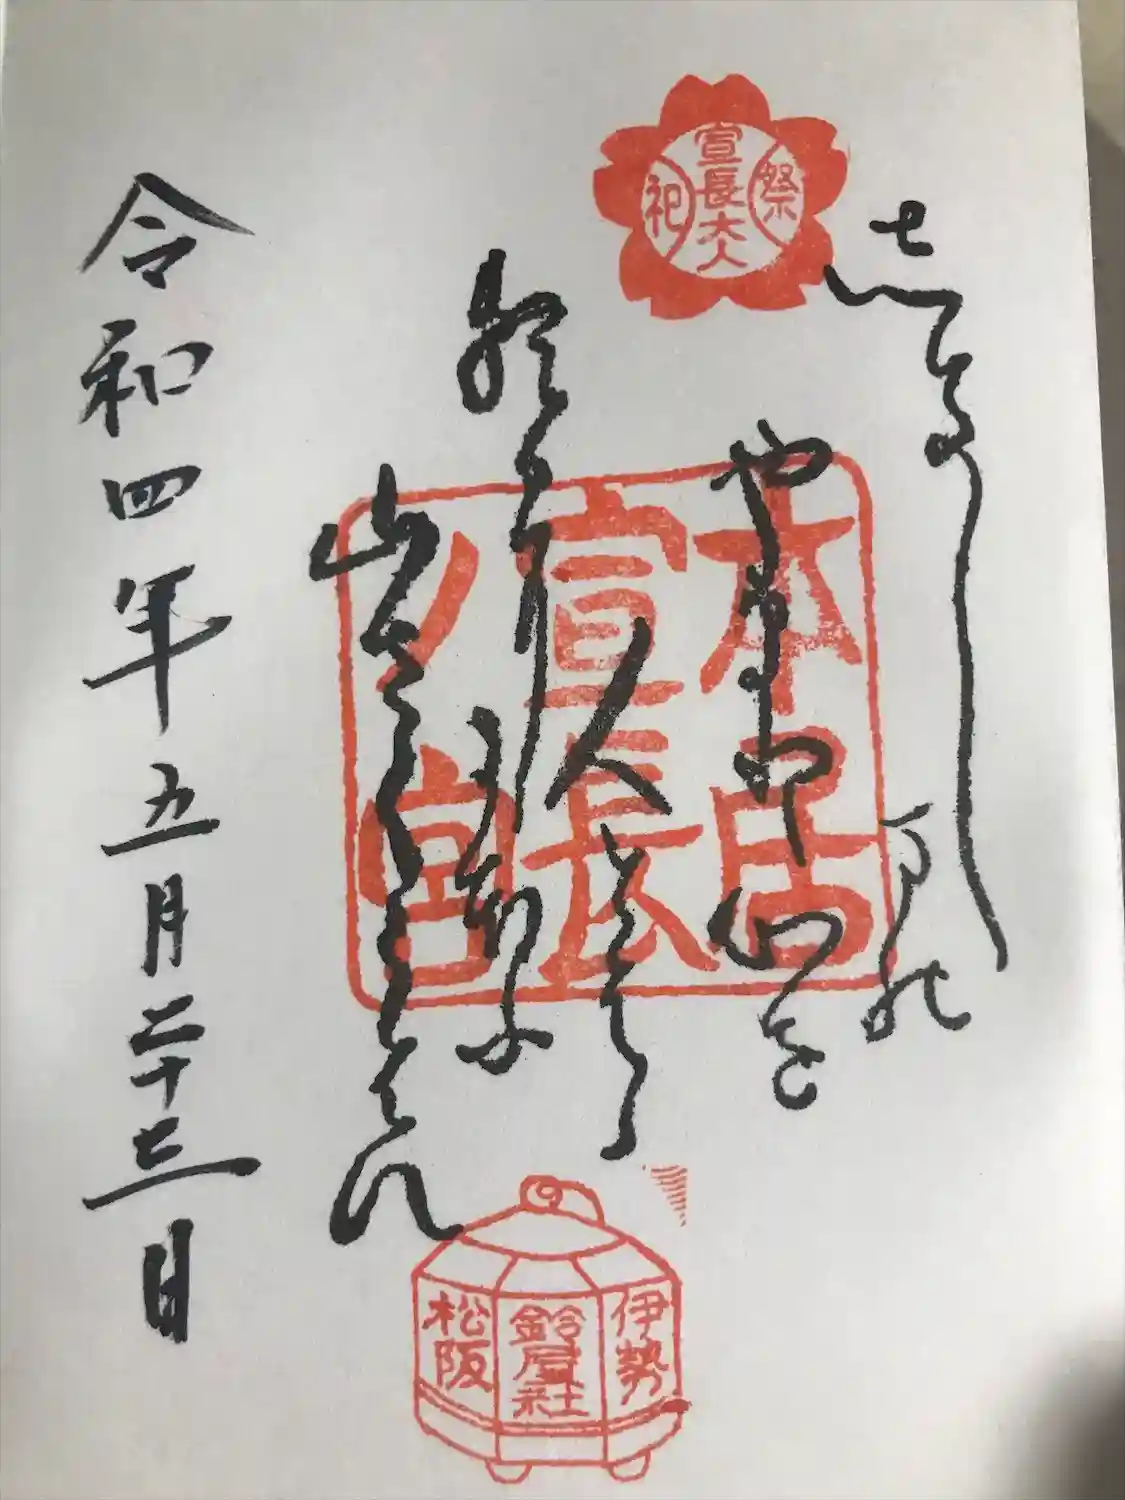 祭
宣長大人
祀
志きしまの
やまと心を
人とはゝ
朝日にゝほふ
山さくらはな
本居
宣長
ノ宮
伊勢
鈴屋社
松阪
令和四年五月二十三日